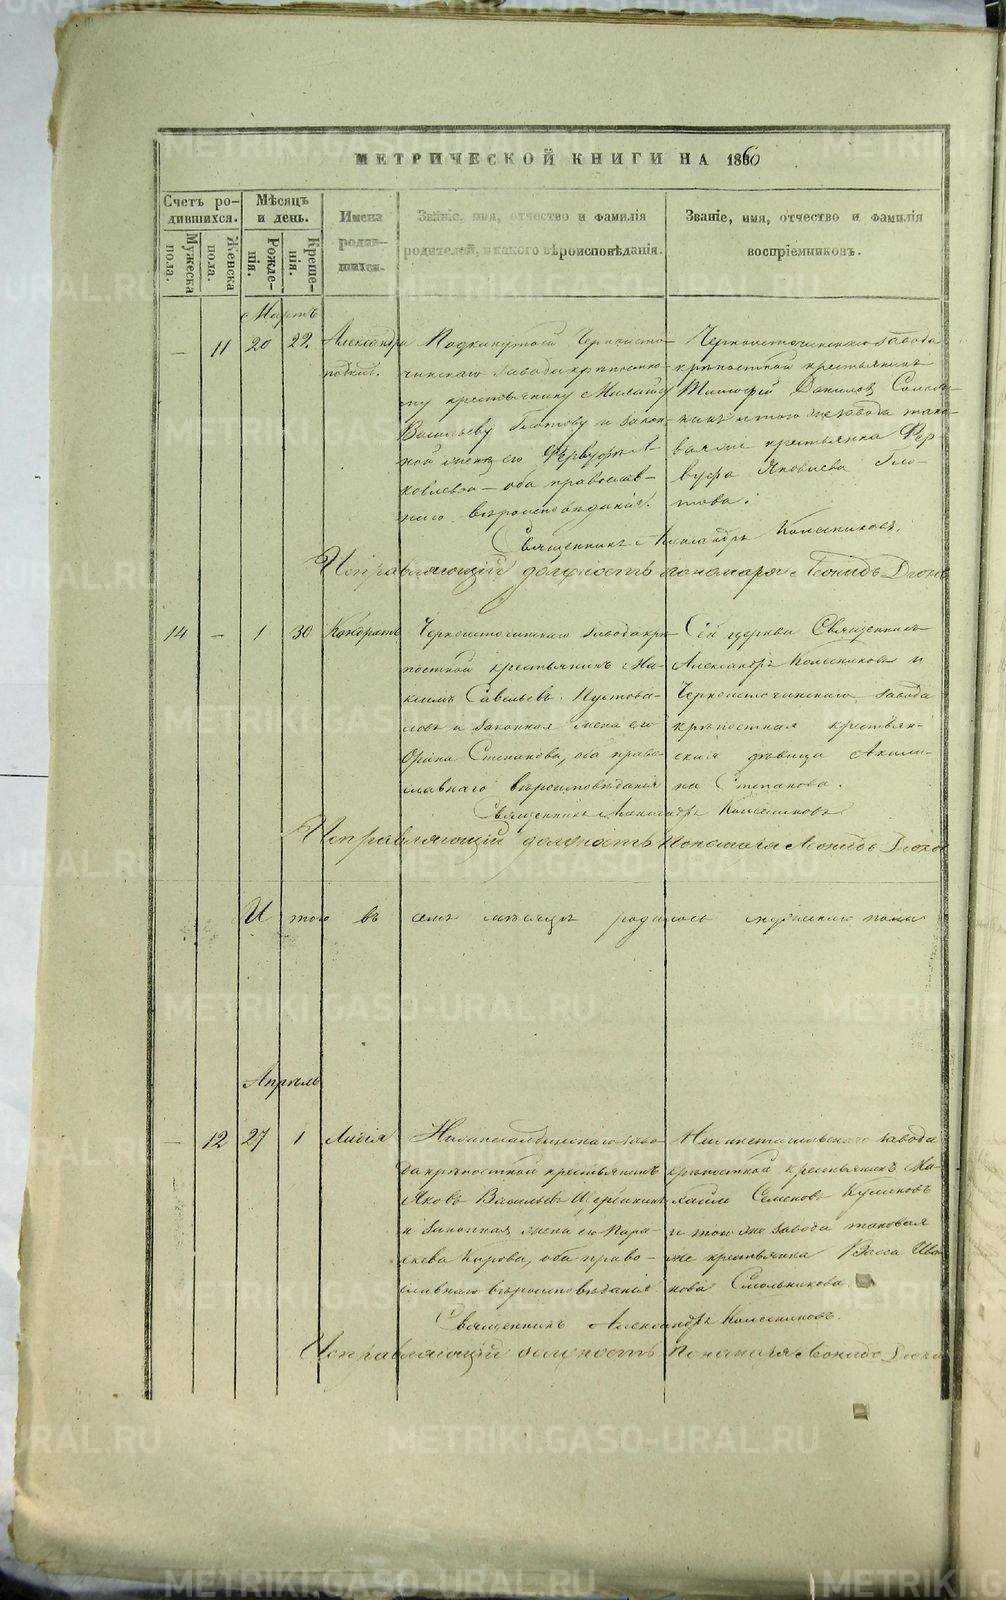 МЕТРИЧЕСКОЙ КНИГИ НА 1860
Счетъ родившихся.
Мѣсяцъ и день.
Имена родившихся.
Званіе, имя, отчество и фамилія
родителей, и какого вѣроисповѣданія.
Званіе, имя, отчество и фамилія
воспріемниковъ.
Мужеска пола.
Женска пола.
Рожденія.
Крещенія.
Мартъ
— 11 20 22 Александра
подкид.
Подкинутой Черноисто-
чинскаго завода крѣпостно-
му крестьянину
Васильеву и закон-
ной женѣ его Я-
ковлевой — оба православ-
наго вѣроисповѣданія.
Черноисточинскаго завода
крѣпостной крестьянинъ
Тимофей Данилов
и того же завода тако-
вая же крестьянка Фев-
Яковлева Гло-
това.
Священникъ Александръ Колесниковъ.
Исправляющій должность пономаря Леонидъ
14 — 1 30 Кондратъ
Черноисточинскаго завода крѣ-
постной крестьянинъ Ма-
ксимъ Савельевъ Пустова-
ловъ и законная жена его
Орина Степанова, оба право-
славнаго вѣроисповѣданія
Сей церкви Священникъ
Александръ Колесниковъ и
Черноисточинскаго завода
крѣпостная крестьян-
ская дѣвица Акили-
на Степанова.
Священникъ Александръ Колесниковъ
Исправляющій должность Пономаря Леонидъ
Итого въ семъ мѣсяцѣ родилось мужескаго пола
Апрѣль
— 12 27 1 Лидія
Нижнетагильскаго заво-
да крѣпостной крестьянинъ
Яковъ Васильевъ Щербининъ
и законная жена его Пара-
скева Карпова, оба право-
славнаго вѣроисповѣданія
Нижнетагильскаго завода
крѣпостной крестьянинъ Ми-
хаилъ Семеновъ Куликовъ
и того же завода таковая
же крестьянка Васса Ива-
нова Смольникова.
Священникъ Александръ Колесниковъ.
Исправляющій должность Пономаря Леонидъ
METRIKI.GASO-URAL.RU